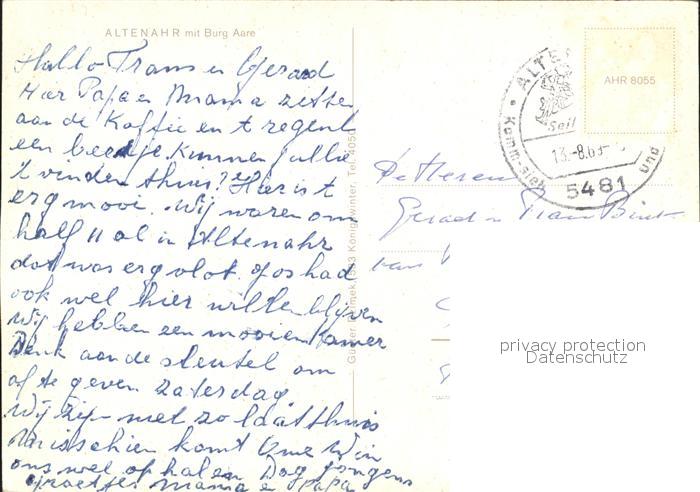 ALTENAHR mit Burg Aare
Hallo Frans en Gerard
Hier Papa en Mama zitten
aan de Koffie en t regent
een beetje. Kunnen jullie
't vinden thuis? Hier is t
erg mooi. Wij waren om
half 11 al in Altenahr
dat was erg vlot. Jos had
ook wel hier willen blijven
Wij hebben een mooie Kamer
Denk aan de sleutel om
af te geven Zaterdag
Wij zijn niet zo laat thuis
Misschien komt Ome Wim
ons wel ophalen Dag jongens
groetjes Mama en Papa
Königswinter, Tel. 4050
AHR 8055
ALTE
Seil
13.-8.69
5481
und
De Heren
Gerard en Frans
van
privacy protection
Datenschutz